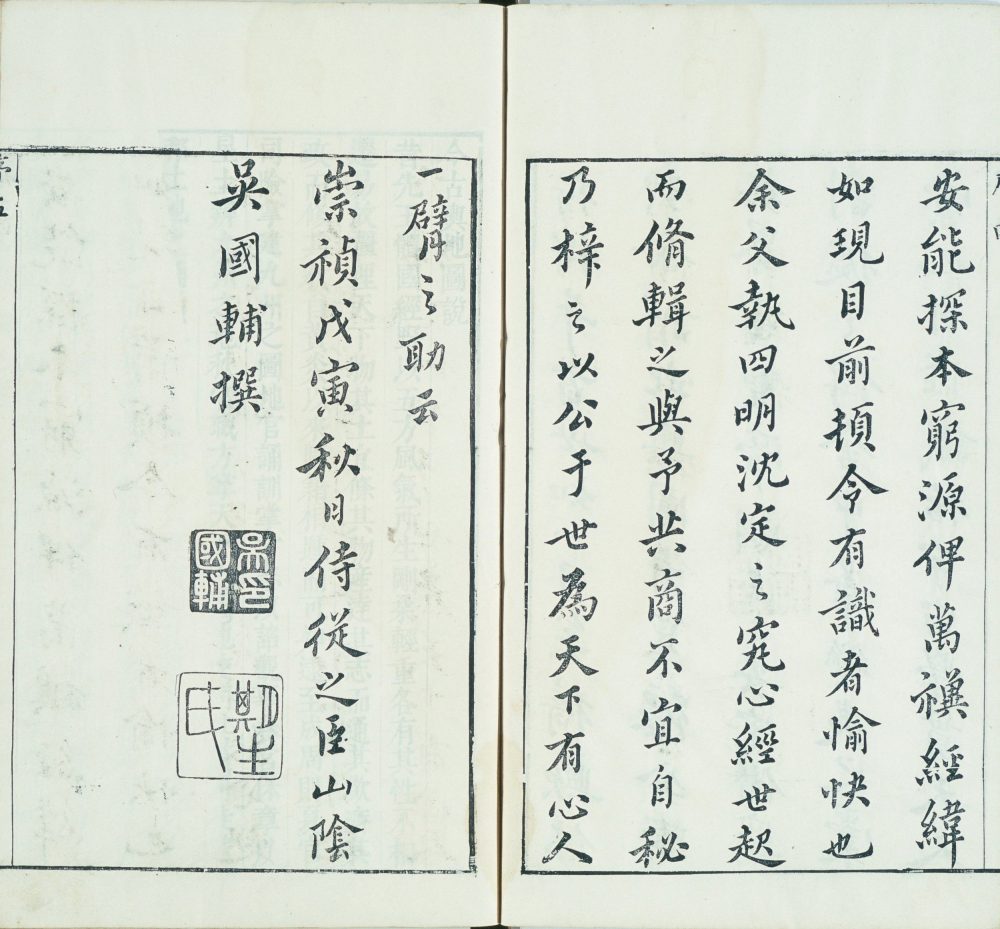 安能探本窮源俾萬禩經緯
如現目前頓令有識者愉快也
余父執四明沈定之究心經世起
而脩輯之與予共商不宜自秘
乃梓之以公于世爲天下有心人
一臂之助云
崇禎戊寅秋日侍從之臣山陰
吳國輔撰
吳印
國輔